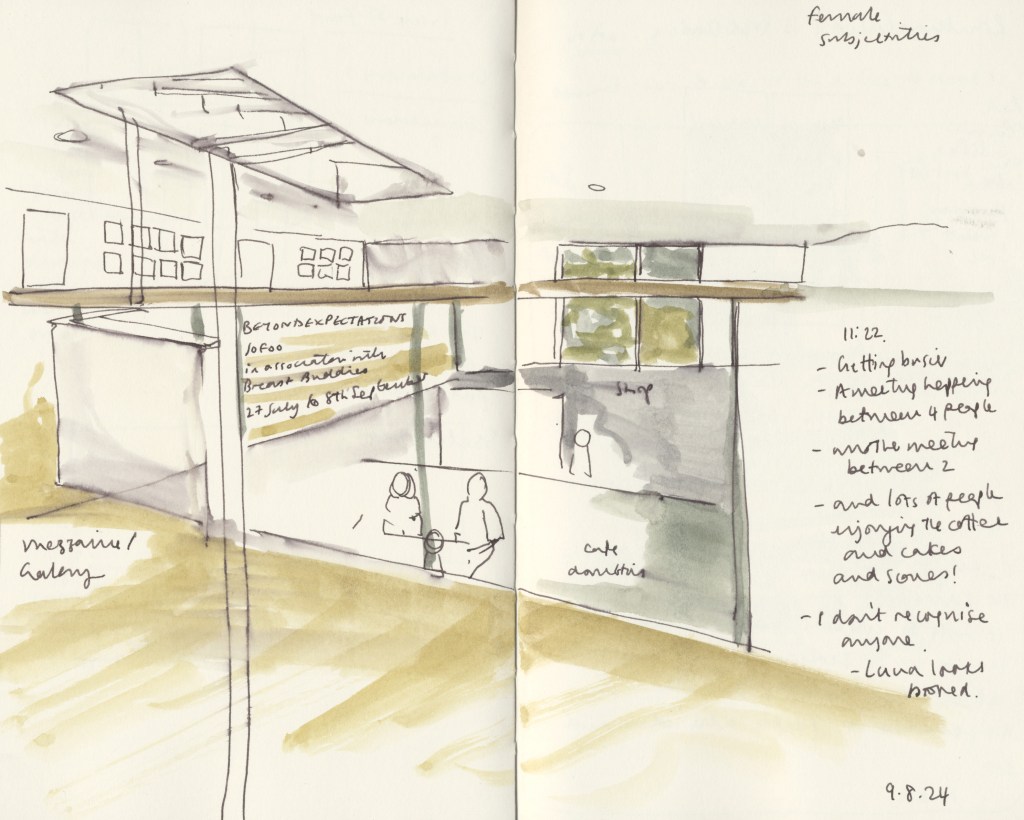 female
subjectivities
BEYOND EXPECTATIONS
JO FOO
in association with
Breast Buddies
27 July to 8th September
Shop
mezzanine/
Gallery
cafe
downstairs
11:22.
- Getting busier
- A meeting happening
between 4 people
- another meeting
between 2
- and lots of people
enjoying the coffee
and cakes
and scones!
- I don't recognise
anyone.
- Luna looks
bored.
9.8.24